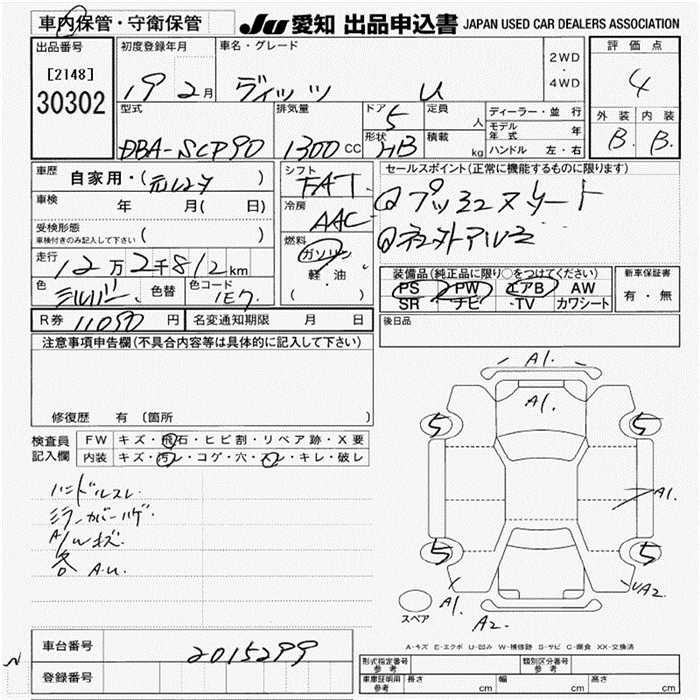 車内保管・守衛保管
JU 愛知 出品申込書 JAPAN USED CAR DEALERS ASSOCIATION
出品番号
[2148]
30302
初度登録年月
19 2月
車名・グレード
ヴィッツ U
2WD
・
4WD
評価点
4
外装 内装
B. B.
型式
DBA-SCP90
排気量
1300 CC
ドア 5
形状 HB
定員 人
積載 kg
ディーラー・並行
モデル年式 年
ハンドル 左・右
車歴
自家用・(元レンタ)
車検 年 月( 日)
受検形態
車検付きのみ記入して下さい ( )
走行 12万2千812km
色 シルバー 色替 色コード 1E7
R券 11090 円 名変通知期限 月 日
シフト FAT
冷房 AAC
燃料
ガソリン
軽・油
( )
セールスポイント(正常に機能するものに限ります)
プッシュスタート
社外アルミ
装備品(純正品に限り○をつけてください)
PS PW エアB AW
SR ナビ TV カワシート
新車保証書
有・無
後日品
注意事項申告欄(不具合内容等は具体的に記入して下さい)
修復歴 有 (箇所 )
検査員
記入欄
FW キズ・飛石・ヒビ割・リペア跡・X要
内装 キズ・汚レ・コゲ・穴・スレ・キレ・破レ
ハンドルスレ.
ミラーカバーハゲ.
A/Wキズ.
各 A.U.
A1.
A1.
5 5
A1
5 5
A1.
UA2.
A2.
スペア
A-キズ E-エクボ U-凹み W-補修跡 S-サビ C-腐食 XX-交換済
車台番号 2015299
登録番号
N
形式指定番号
参考
類別区分番号
参考
車庫証明用
参考
長さ cm 幅 cm 高さ cm